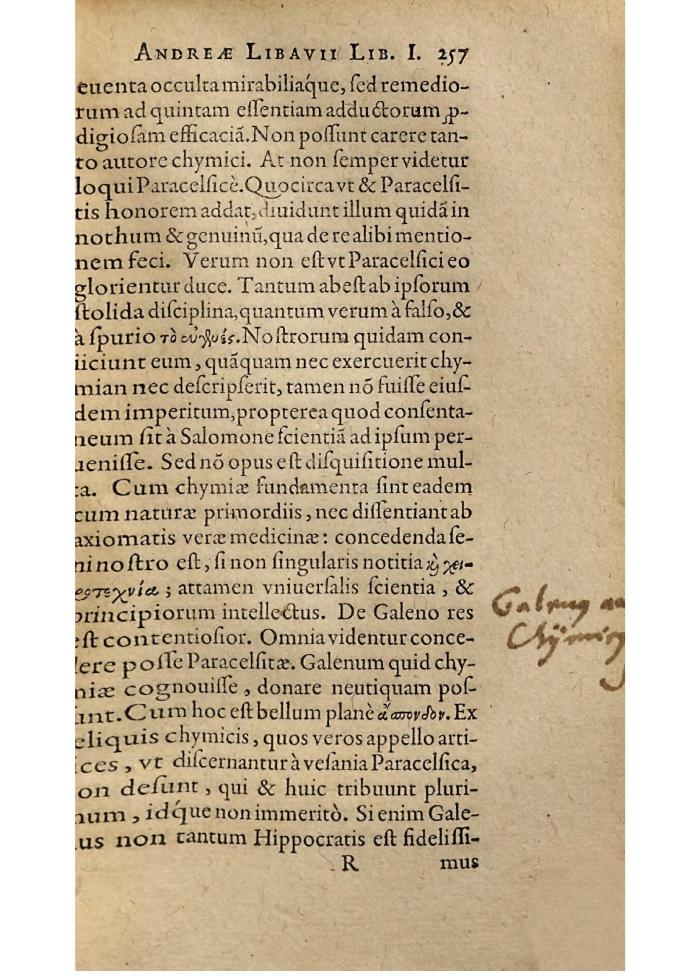 ANDREÆ LIBAVII LIB. I. 257
euenta occulta mirabiliaq́ue, ſed remedio-
rum ad quintam eſſentiam adductorum ꝓ-
digioſam efficaciã. Non poſſunt carere tan-
to autore chymici. At non ſemper videtur
loqui Paracelſicè. Quocirca vt & Paracelſi-
tis honorem addat, diuidunt illum quidã in
nothum & genuinũ, qua de re alibi mentio-
nem feci. Verum non eſt vt Paracelſici eo
glorientur duce. Tantum abeſt ab ipſorum
ſtolida diſciplina, quantum verum à falſo, &
à ſpurio τὸ εὐφυές. Noſtrorum quidam con-
iiciunt eum, quãquam nec exercuerit chy-
mian nec deſcripſerit, tamen nõ fuiſſe eiuſ-
dem imperitum, propterea quod conſenta-
neum ſit à Salomone ſcientiã ad ipſum per-
ueniſſe. Sed nõ opus eſt diſquiſitione mul-
ta. Cum chymiæ fundamenta ſint eadem
cum naturæ primordiis, nec diſſentiant ab
axiomatis veræ medicinæ: concedenda ſe-
ni noſtro eſt, ſi non ſingularis notitia ϗ χει-
ροτεχνία; attamen vniuerſalis ſcientia, &
principiorum intellectus. De Galeno res
eſt contentioſior. Omnia videntur conce-
dere poſſe Paracelſitæ. Galenum quid chy-
miæ cognouiſſe, donare neutiquam poſ-
ſunt. Cum hoc eſt bellum planè ἄσπονδον. Ex
reliquis chymicis, quos veros appello arti-
ices, vt diſcernantur à veſania Paracelſica,
on deſunt, qui & huic tribuunt pluri-
num, idq́ue non immeritò. Si enim Gale-
us non tantum Hippocratis eſt fideliſſi-
R mus
Galenus an
Chÿmicus